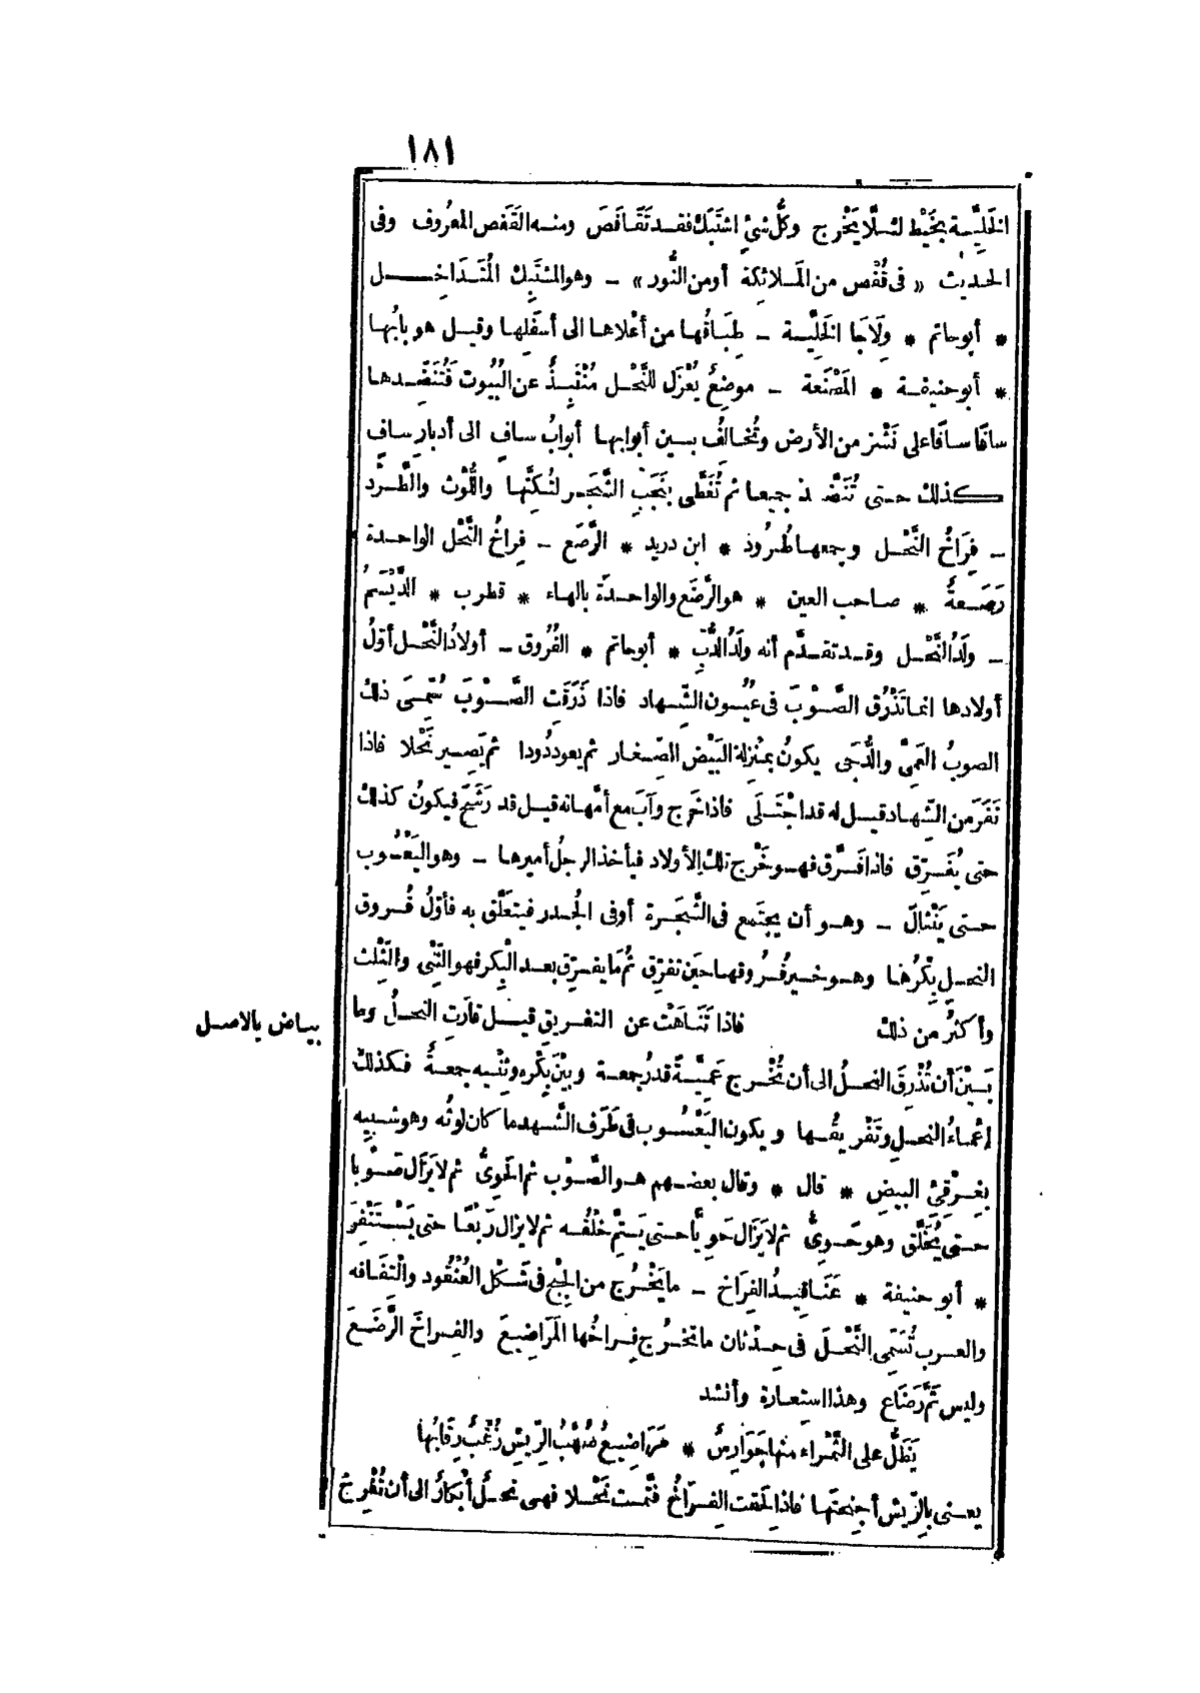 ١٨١
الخَلِيَّة بخَيْط لئلَّا يَخْرج وكُلُّ شئ اشتَبَكَ فقد تَقَافَصَ ومنه القَفَص المعرُوف وفى
الحديث « فى قُفْص من الملائكة أو من النُّور » ـ وهو المشتَبِك المُتَدَاخِل
* أبو حاتم * ولَاجَا الخَلِيَّة ـ طِبَاقُها من أعْلاها الى أسفَلِها وقيل هو بابُها
* أبو حنيفة * المَصْنَعة ـ موضِعٌ يُعْزَل للنَّحْل مُنْتَبِذٌ عن البُيوت فَتُنَضِّدها
سافًا سافًا على نَشْز من الأرض وتُخالَفُ بين أبوابها أبوابُ سافٍ الى أدبارِ سافٍ
كذلك حتى تُنَضَّد جميعا ثم تُغَطَّى بنَجَبِ الشَّجَر لتُكِنَّها واللَّوْث والطَّرْد
ـ فِرَاخُ النَّحْل وجمعها طُرُود * ابن دريد * الرَّصَع ـ فِراخُ النَّحْل الواحدة
رَصَعةٌ * صاحب العين * هو الرَّضَع والواحدة بالهاء * قطرب * الدَّيْسَمُ
ـ ولَدُ النَّحْل وقد تقدَّم أنه ولَدُ الدُّبّ * أبو حاتم * الفُرُوق ـ أولادُ النَّحْل أوّلُ
أولادها انما تَذْرُق الصَّوْبَ فى عُيُون الشِّهاد فاذا ذَرَقَت الصَّوْبَ سُمّىَ ذلك
الصوبُ العَمِىَّ والدُّجَى يكونُ بمنْزلة البَيْض الصِّغار ثم يعود دُودا ثم يَصِير نَحْلا فاذا
نَفَر من الشِّهاد قيل له قد اجْتَلَى فاذا خَرج وآبَ مع أمَّهاته قيل قد رَشَّحَ فيكونُ كذلك
حتى يُفَرِّق فاذا فَرَّق فهو خَرْج تلك الأولاد فيأخذ الرجلُ أميرها ـ وهو اليَعْسُوب
حتى يَنْثالَ ـ وهو أن يجتَمِع فى الشَّجَرة أو فى الجُدر فيتعَلَّق به فأوّلُ فُروق
النحلِ بِكْرُها وهو خير فُرُوقها حين تفرِّق ثُمّ ما يفرِّق بعد البِكْر فهو الثِّنْى والثِّلْث
وأكثرُ من ذلك فاذا تَنَاهَتْ عن التفريق قيل قارَتِ النحلُ وما
بياض بالاصل
بَيْنَ أن تُذْرِقَ النحلُ الى أن تُخْرج عَمِيَّةً قدرُ جمعة وبَيْنَ بِكْرِه وثِنْيه جمعةٌ فكذلك
إعْماءُ النحلِ وتَفْريقُها ويكون اليَعْسُوب فى طَرَف الشَّهد ما كان لوثُه وهو شبيه
بغِرْقِئ البيضِ * قال * وقال بعضهم هو الصَّوْب ثم الحَوِىُّ ثم لا يَزَال صَوْبا
حتى يُخَلَّق وهو حَوِىٌّ ثم لا يَزَال حَوِيًّا حتى يَستِمَّ خَلْقُه ثم لا يزال رَبْعًا حتى يَسْتَنْفِرَ
* أبو حنيفة * عَنَاقِيدُ الفِرَاخ ـ ما يَخْرُج من الجُبْح فى شَكْل العُنْقود والْتفَافه
والعرب تُسَمِّى النَّحْلَ فى حِدْثان ما تَخرُج فِراخُها المَرَاضِيعَ والفِراخَ الرَّضَعَ
وليس ثَمَّ رَضَاع وهذا استعارة وأنشد
يَظَلُّ على الثَّمْراء منها جَوَارِسٌ * مَرَاضِيعُ صُهْبُ الرِّيشِ زُغْبٌ رِقَابُها
يعنى بالرِّيش أجنِحتَها فاذا لَحقت الفِرَاخُ فتَمَّت نَحْلا فهى نحلٌ أبكارٌ الى أن تُفْرِخَ